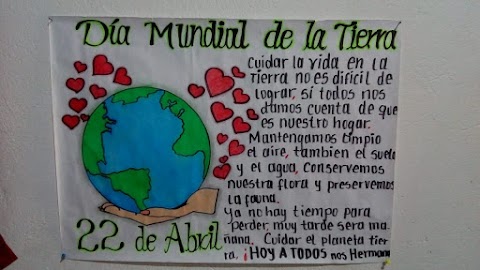 Día Mundial de la Tierra
Cuidar la vida en la
tierra no es difícil de
lograr, sí todos nos
damos cuenta de que
es nuestro hogar.
Mantengamos limpio
el aire, tambien el suelo
y el agua, conservemos
nuestra flora y preservemos
la fauna.
Ya no hay tiempo para
perder, muy tarde sera ma-
ñana. Cuidar el planeta tie-
rra. ¡HOY A TODOS nos Herman
22 de Abril